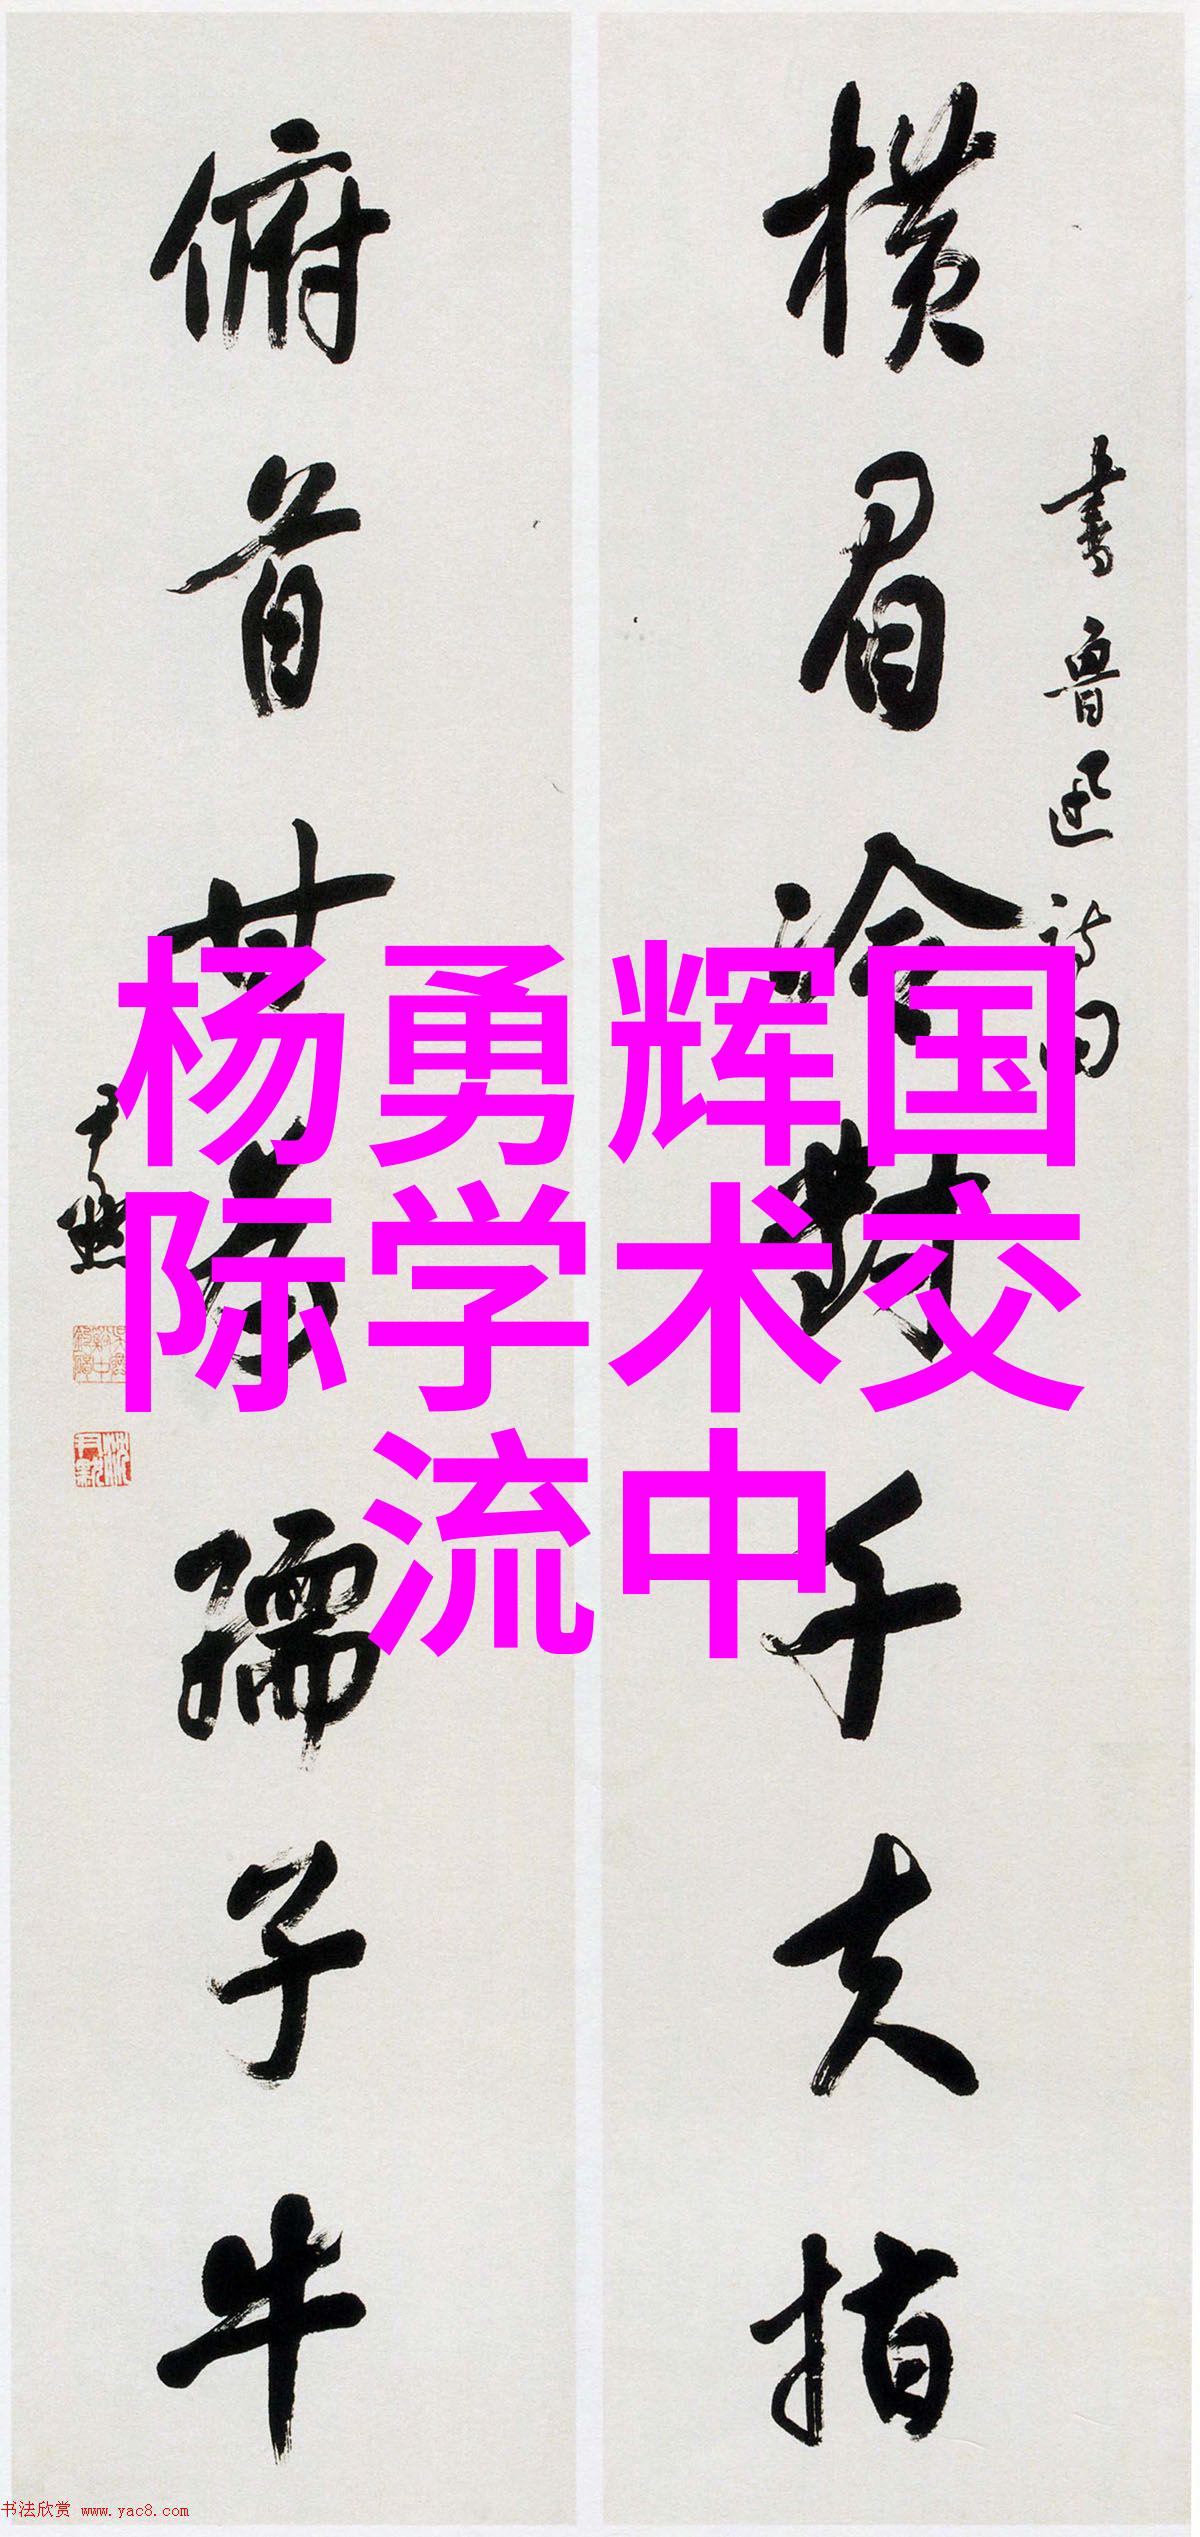 书鲁迅诗句
横眉冷对千夫指
俯首甘为孺子牛
尹默
杨勇辉国
际学术交
流中
书法欣赏 www.yac8.com